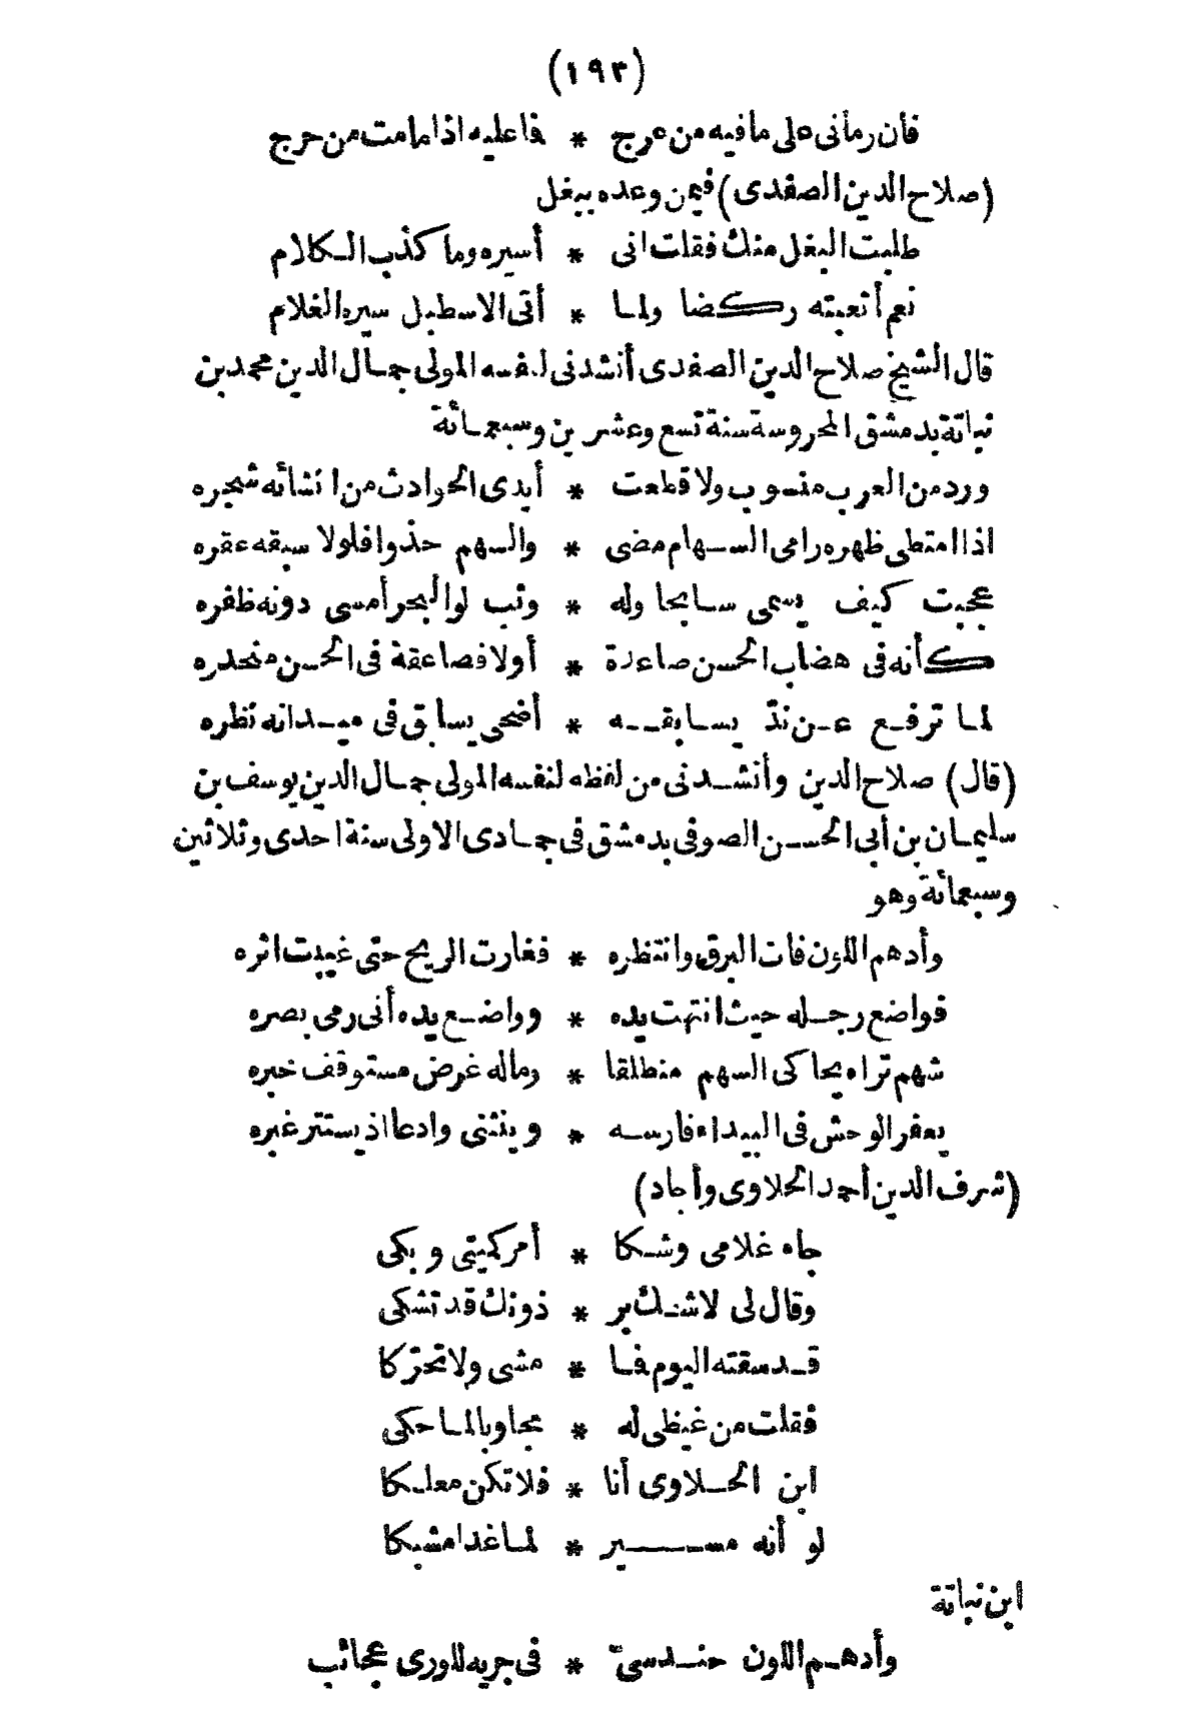 (١٩٣)
فان رمانى على ما فيه من عرج * فما عليه اذا ما مت من حرج
(صلاح الدين الصفدى) فيمن وعده ببغل
طلبت البغل منك فقلت انى * أسيره وما كذب الكلام
نعم أتعبته ركضا ولما * أتى الاسطبل سيره الغلام
قال الشيخ صلاح الدين الصفدى أنشدنى لنفسه المولى جمال الدين محمد بن
نباتة بدمشق المحروسة سنة تسع وعشرين وسبعمائة
ورد من العرب منسوب ولا قطعت * أيدى الحوادث من انشائه شجره
اذا امتطى ظهره رامى السهام مضى * والسهم حذوا فلولا سبقه عقره
عجبت كيف يسمى سابحا وله * وثب لو البحر أمسى دونه ظفره
كأنه فى هضاب الحسن صاعدة * أولا فصاعقة فى الحسن منحدره
لما ترفع عن ندّ يسابقه * أضحى يسابق فى ميدانه نظره
(قال) صلاح الدين وأنشدنى من لفظه لنفسه المولى جمال الدين يوسف بن
سليمان بن أبى الحسن الصوفى بدمشق فى جمادى الاولى سنة احدى وثلاثين
وسبعمائة وهو
وأدهم اللون فات البرق وانتظره * فغارت الريح حتى غيبت اثره
فواضع رجله حيث انتهت يده * وواضع يده أنى رمى بصره
شهم تراه يحاكى السهم منطلقا * وماله غرض مستوقف خبره
يعفر الوحش فى البيداء فارسه * وينثنى وادعا اذ يستتر غبره
(شرف الدين أحمد الحلاوى وأجاد)
جاه غلامى وشكا * أمر كميتى وبكى
وقال لى لا شك بر * ذونك قد تشكى
قد سقته اليوم فما * مشى ولا تحرّكا
فقلت من غيظى له * مجاوبا لما حكى
ابن الحلاوى أنا * فلا تكن معلكا
لو أنه مسير * لما غدا مشبكا
ابن نباتة
وأدهم اللون حندسىّ * فى جريه للورى عجائب